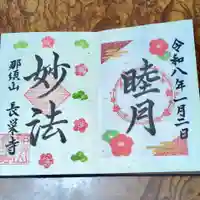 令和八年一月二日
睦月
妙法
那須山
長栄寺